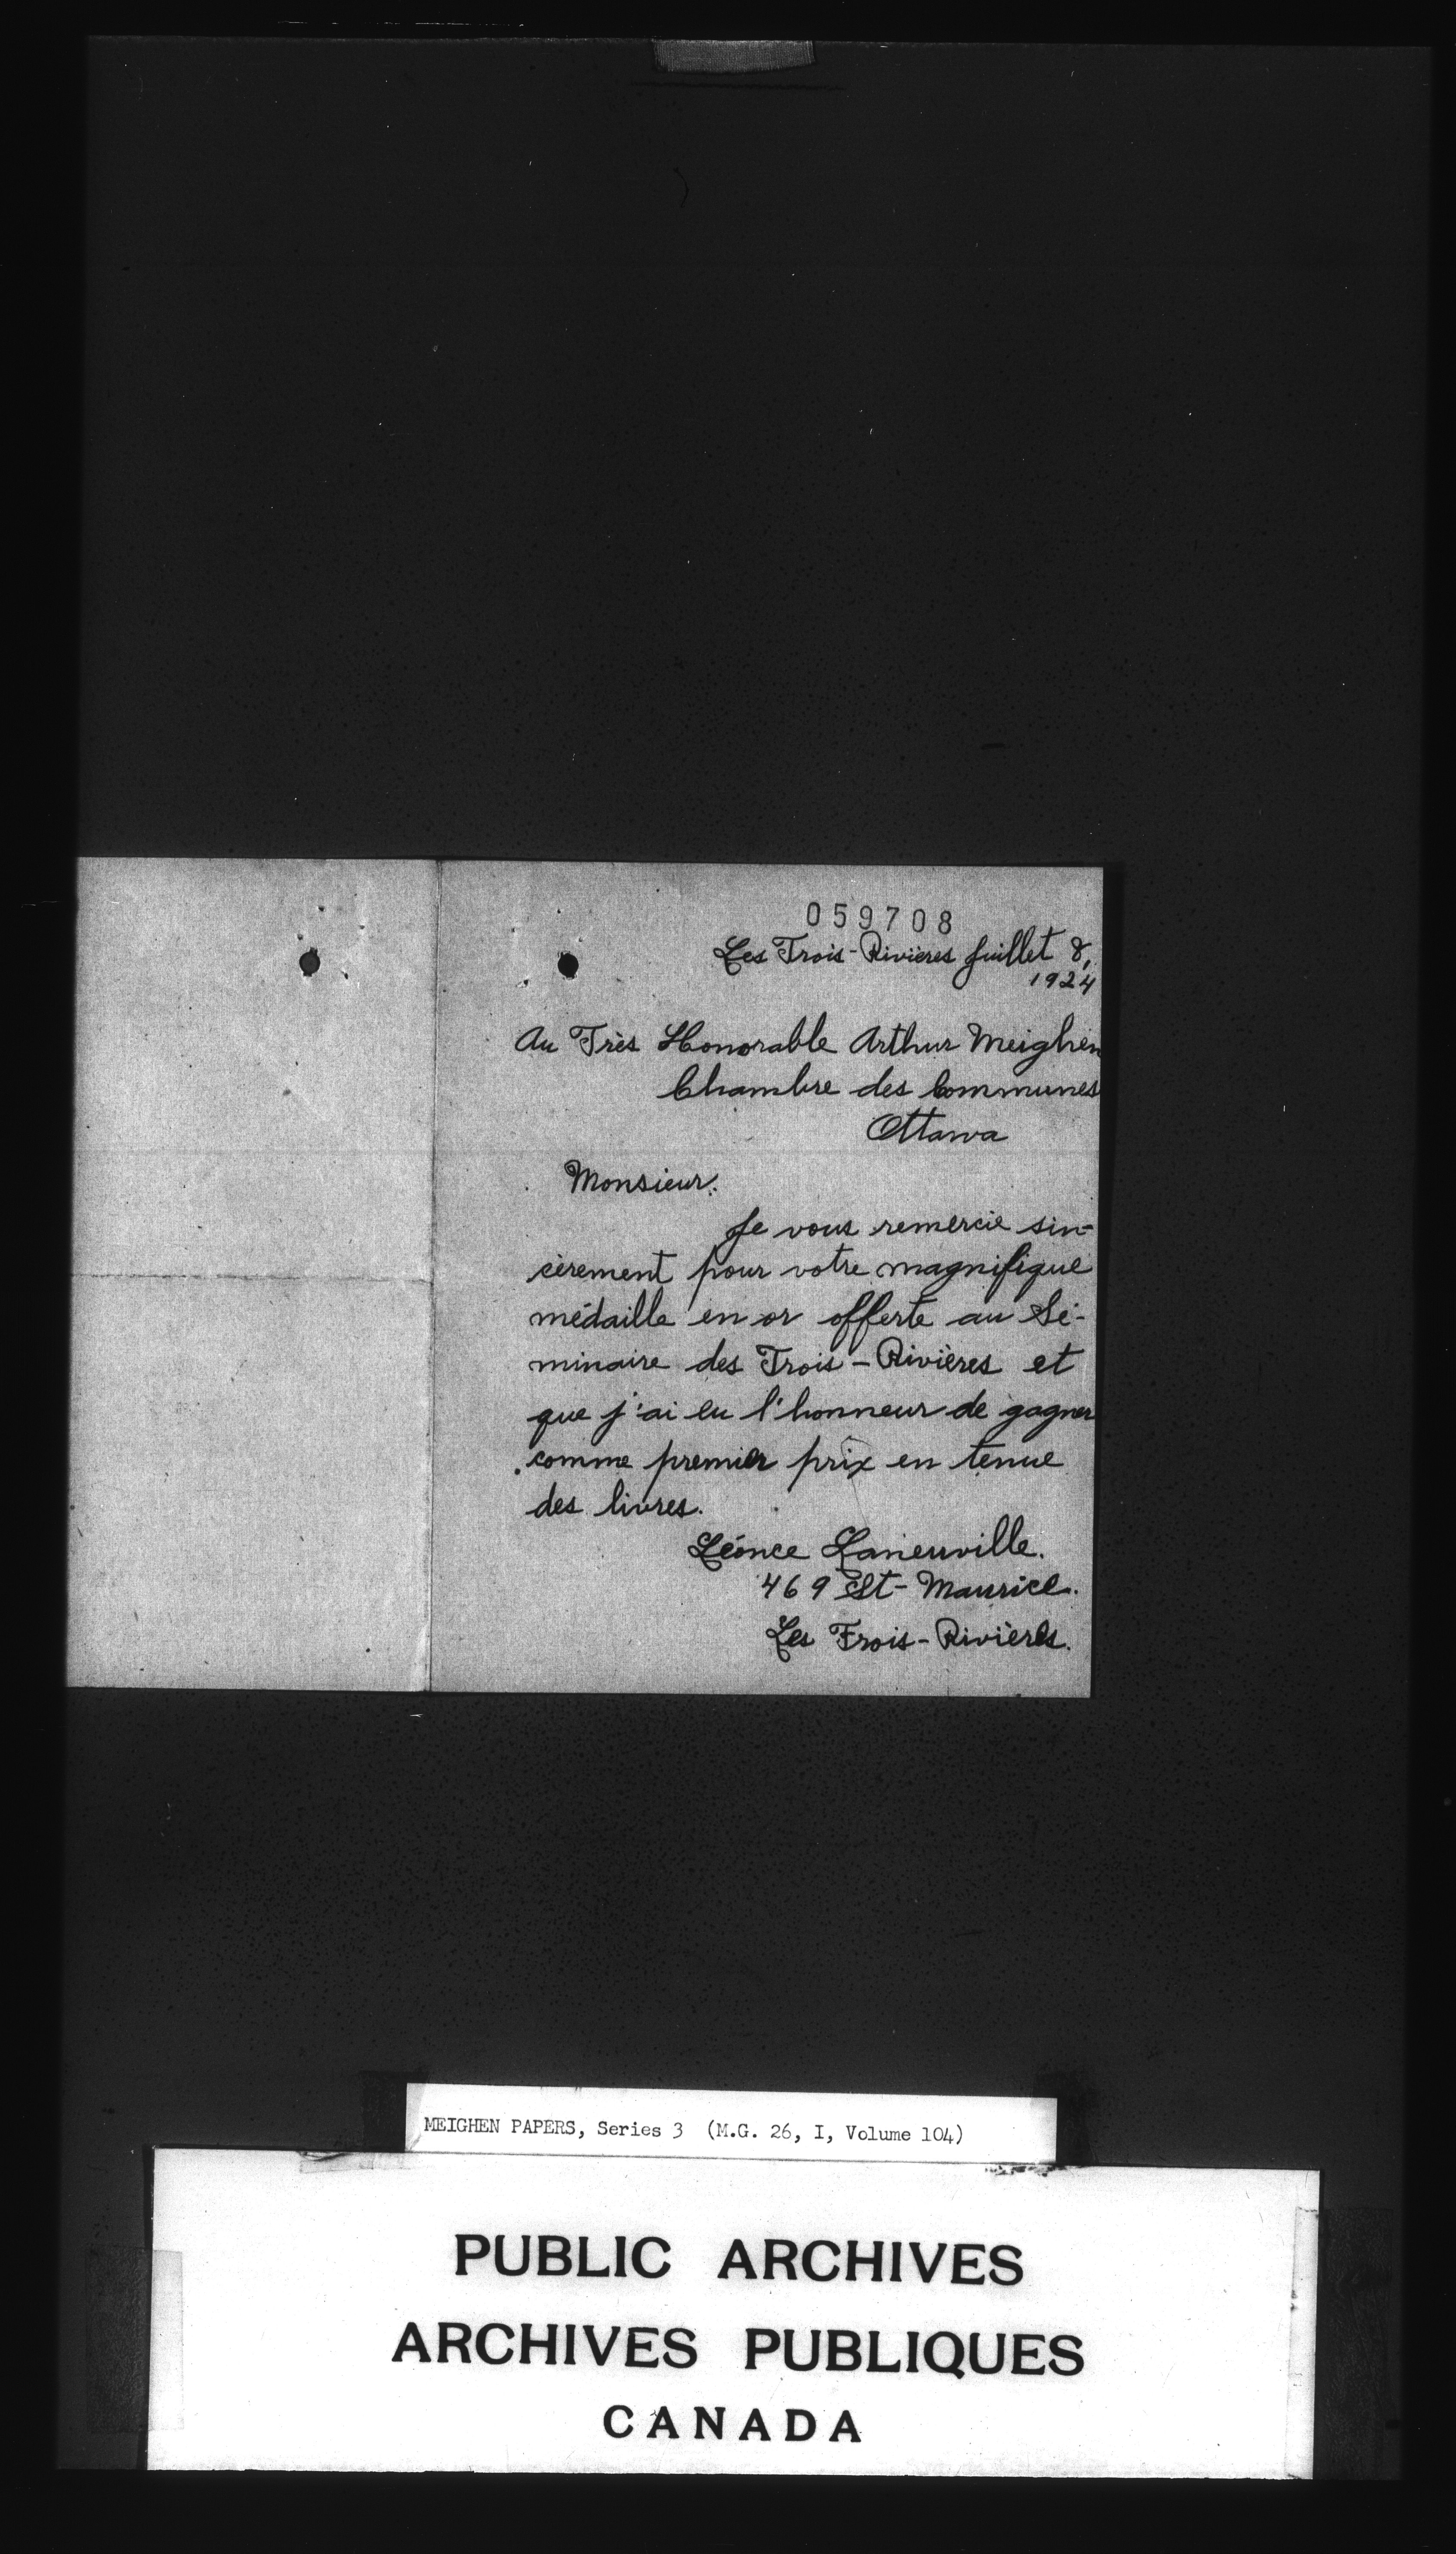 059708
Les Trois-Rivières Juillet 8,
1924
Au Très Honorable Arthur Meighen
Chambre des Communes
Ottawa
Monsieur:
Je vous remercie sin-
cèrement pour votre magnifique
médaille en or offerte au Sé-
minaire des Trois-Rivières et
que j'ai eu l'honneur de gagner
comme premier prix en tenue
des livres.
Léonce Laneuville.
469 St-Maurice.
Les Trois-Rivières.
MEIGHEN PAPERS, Series 3 (M.G. 26, I, Volume 104)
PUBLIC ARCHIVES
ARCHIVES PUBLIQUES
CANADA